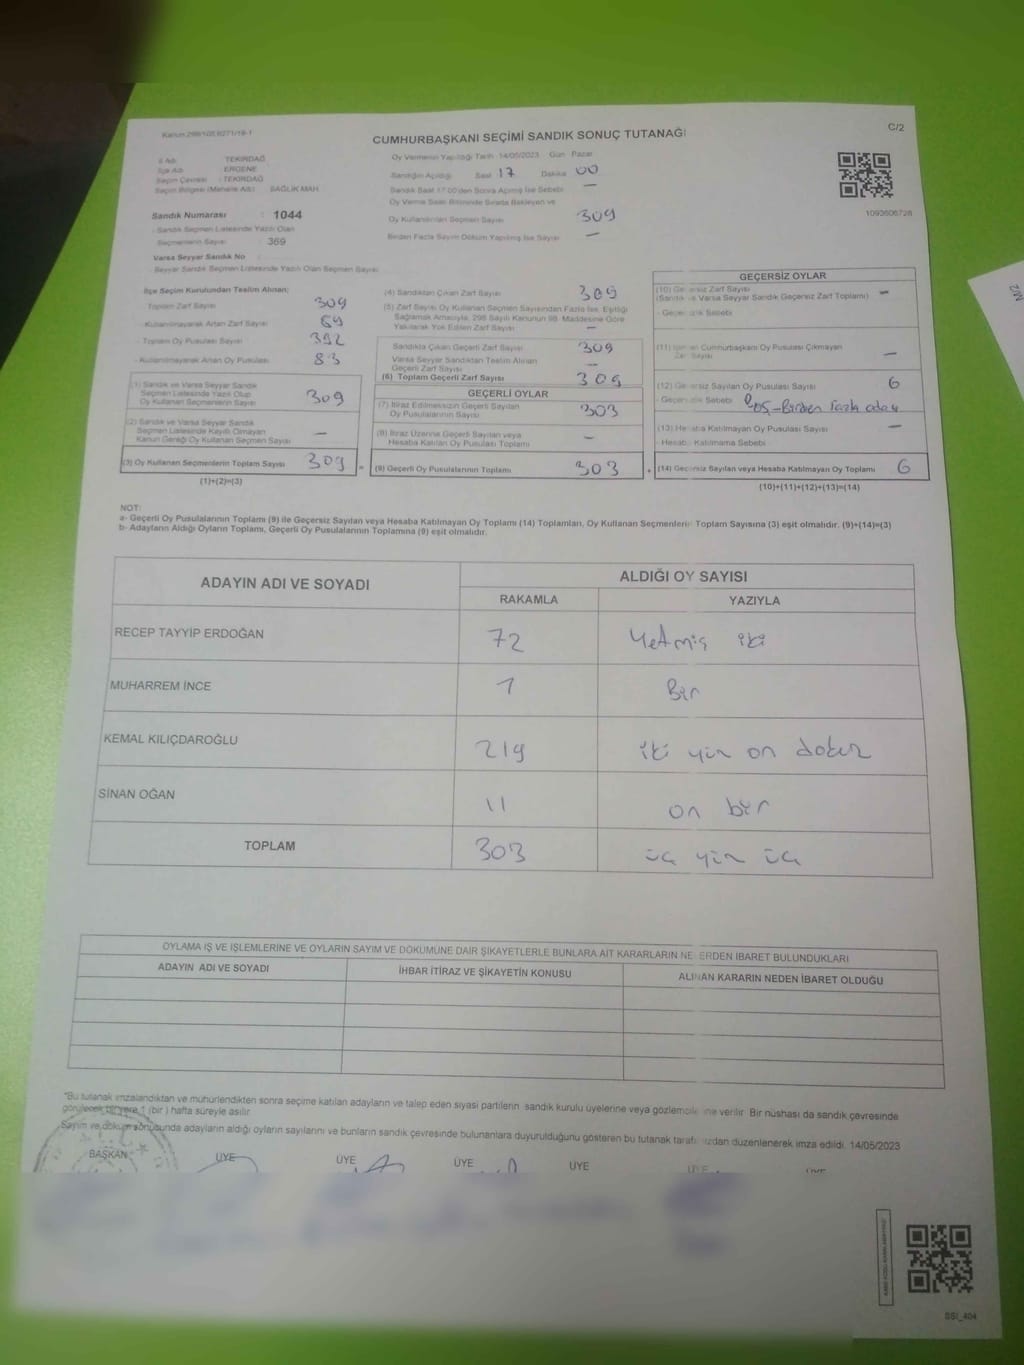 Kanun:298/105,6271/19-1
C/2
CUMHURBAŞKANI SEÇİMİ SANDIK SONUÇ TUTANAĞI
İl Adı : TEKİRDAĞ
İlçe Adı : ERGENE
Seçim Çevresi : TEKİRDAĞ
Seçim Bölgesi (Mahalle Adı) : SAĞLIK MAH.
Sandık Numarası : 1044
Sandık Seçmen Listesinde Yazılı Olan
Seçmenlerin Sayısı : 369
Varsa Seyyar Sandık No :
Seyyar Sandık Seçmen Listesinde Yazılı Olan Seçmen Sayısı:
Oy Vermenin Yapıldığı Tarih :14/05/2023 Gün : Pazar
Sandığın Açıldığı Saat 17 Dakika 00
Sandık Saat 17.00'den Sonra Açılmış İse Sebebi —
Oy Verme Saati Bitiminde Sırada Bekleyen ve
Oy Kullandırılan Seçmen Sayısı 309
Birden Fazla Sayım Döküm Yapılmış İse Sayısı —
1093606728
İlçe Seçim Kurulundan Teslim Alınan;
Toplam Zarf Sayısı 309
- Kullanılmayarak Artan Zarf Sayısı 69
- Toplam Oy Pusulası Sayısı 392
- Kullanılmayarak Artan Oy Pusulası 83
(1) Sandık ve Varsa Seyyar Sandık
Seçmen Listesinde Yazılı Olup
Oy Kullanan Seçmenlerin Sayısı 309
(2) Sandık ve Varsa Seyyar Sandık
Seçmen Listesinde Kayıtlı Olmayan
Kanun Gereği Oy Kullanan Seçmen Sayısı —
(3) Oy Kullanan Seçmenlerin Toplam Sayısı 309
(1)+(2)=(3)
(4) Sandıktan Çıkan Zarf Sayısı 309
(5) Zarf Sayısı Oy Kullanan Seçmen Sayısından Fazla İse, Eşitliği
Sağlamak Amacıyla, 298 Sayılı Kanunun 98. Maddesine Göre
Yakılarak Yok Edilen Zarf Sayısı —
Sandıkta Çıkan Geçerli Zarf Sayısı 309
Varsa Seyyar Sandıktan Teslim Alınan
Geçerli Zarf Sayısı —
(6) Toplam Geçerli Zarf Sayısı 309
GEÇERLİ OYLAR
(7) İtiraz Edilmeksizin Geçerli Sayılan
Oy Pusulalarının Sayısı 303
(8) İtiraz Üzerine Geçerli Sayılan veya
Hesaba Katılan Oy Pusulası Toplamı —
= (9) Geçerli Oy Pusulalarının Toplamı 303
GEÇERSİZ OYLAR
(10) Geçersiz Zarf Sayısı
(Sandık ve Varsa Seyyar Sandık Geçersiz Zarf Toplamı) —
- Geçersizlik Sebebi
Cumhurbaşkanı Oy Pusulası Çıkmayan
Zarf Sayısı —
(12) Geçersiz Sayılan Oy Pusulası Sayısı 6
- Geçersizlik Sebebi Boş-Birden fazla aday
(13) Hesaba Katılmayan Oy Pusulası Sayısı —
- Hesaba Katılmama Sebebi
+ (14) Geçersiz Sayılan veya Hesaba Katılmayan Oy Toplamı 6
(10)+(11)+(12)+(13)=(14)
NOT:
a- Geçerli Oy Pusulalarının Toplamı (9) ile Geçersiz Sayılan veya Hesaba Katılmayan Oy Toplamı (14) Toplamları, Oy Kullanan Seçmenlerin Toplam Sayısına (3) eşit olmalıdır. (9)+(14)=(3)
b- Adayların Aldığı Oyların Toplamı, Geçerli Oy Pusulalarının Toplamına (9) eşit olmalıdır.
ADAYIN ADI VE SOYADI
ALDIĞI OY SAYISI
RAKAMLA YAZIYLA
RECEP TAYYİP ERDOĞAN 72 Yetmiş iki
MUHARREM İNCE 1 Bir
KEMAL KILIÇDAROĞLU 219 iki yüz on dokuz
SİNAN OĞAN 11 on bir
TOPLAM 303 üç yüz üç
OYLAMA İŞ VE İŞLEMLERİNE VE OYLARIN SAYIM VE DÖKÜMÜNE DAİR ŞİKAYETLERLE BUNLARA AİT KARARLARIN NELERDEN İBARET BULUNDUKLARI
ADAYIN ADI VE SOYADI İHBAR İTİRAZ VE ŞİKAYETİN KONUSU ALINAN KARARIN NEDEN İBARET OLDUĞU
*Bu tutanak imzalandıktan ve mühürlendikten sonra seçime katılan adayların ve talep eden siyasi partilerin sandık kurulu üyelerine veya gözlemcilerine verilir. Bir nüshası da sandık çevresinde
görülecek bir yere 1 (bir) hafta süreyle asılır.
Sayım ve döküm sonucunda adayların aldığı oyların sayılarını ve bunların sandık çevresinde bulunanlara duyurulduğunu gösteren bu tutanak tarafımızdan düzenlenerek imza edildi. 14/05/2023
BAŞKAN ÜYE ÜYE ÜYE ÜYE ÜYE ÜYE
SSI_404
M/2